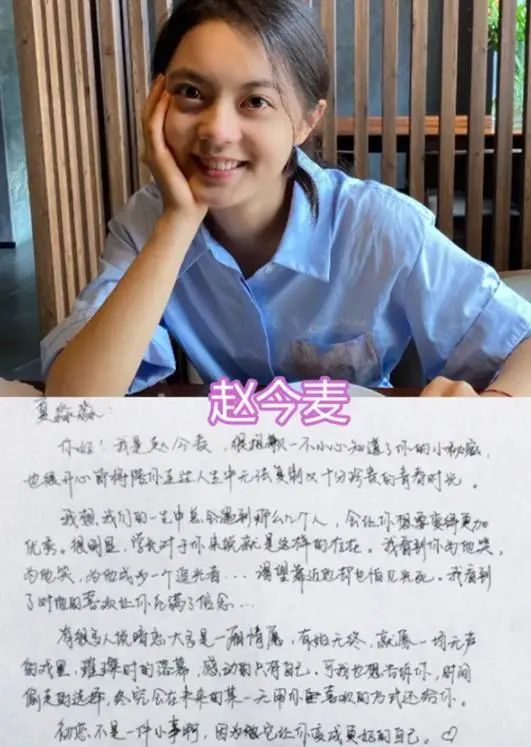 赵今麦
夏淼淼：
你好！我是赵今麦，很抱歉一不小心知道了你的小秘密，
也很开心即将陪你走过人生中无法复制又十分珍贵的青春时光。
我想，我们的一生中总会遇到那么几个人，会让你想要变得更加
优秀。很明显，学长对于你来说就是这样的存在。我看到你为他哭，
为他笑，为他成为一个追光者...渴望靠近他却也怕见光死。我看到
了对他的喜欢让你充满了信念...
有很多人说暗恋大多是一厢情愿，有始无终，就像一场无声
的戏里，璀璨时的落幕，感动的只有自己。可我也想告诉你，时间
偷走的选择，终究会在未来的某一天用你喜欢的方式还给你。
初恋不是一件小事啊，因为它让你变成更好的自己。♡